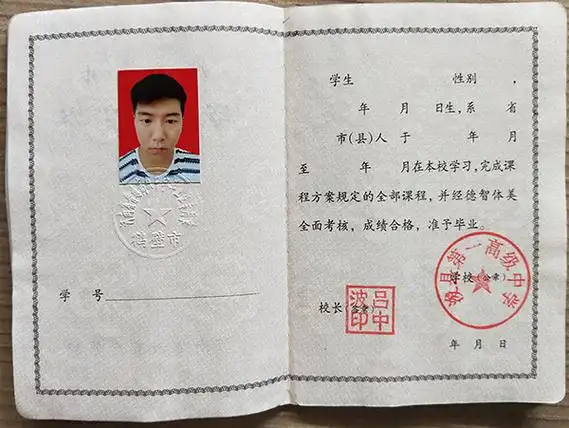 学号
学生 性别 ，
年 月 日生，系 省
市(县)人 于 年 月
至 年 月在本校学习，完成课
程方案规定的全部课程，并经德智体美
全面考核，成绩合格，准予毕业。
县第一高级中学
学校(公章)
校长(签章)
吕中波印
年 月 日